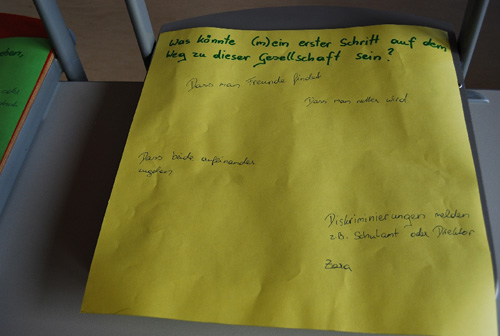 Was könnte (m)ein erster Schritt auf dem
Weg zu dieser Gesellschaft sein?
Dass man Freunde findet
Dass man netter wird
Dass beide aufeinander
zugehen
Diskriminierungen melden
z.B. Schulamt oder Direktor
Zara